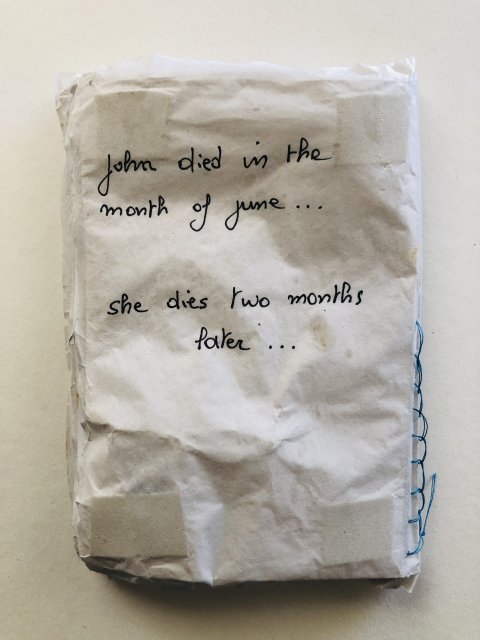 John died in the
month of june...
she dies two months
later...